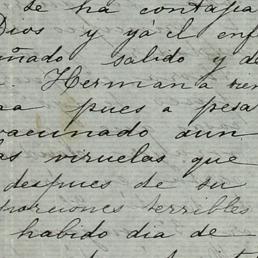 se ha contaja
Dios y yá el enf
ñado salido y d
. Hermana tien
na pues a pesa
vacunado aun
as viruelas que
despues de su
porciones terribles
habido dia de